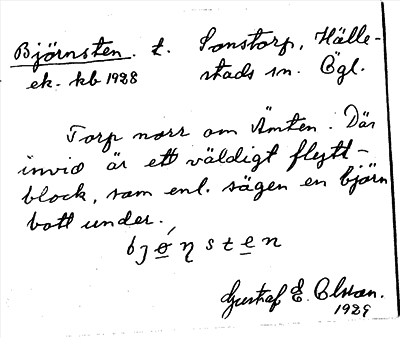 Björnsten. t. Sonstorp, Hälle-
ek. kb 1928 stads sn. Ögl.
Torp norr om Ämten. Där
invid är ett väldigt flytt-
block, som enl. sägen en björn
bott under.
bjǿŋsten
Gustaf E. Olsson.
1929